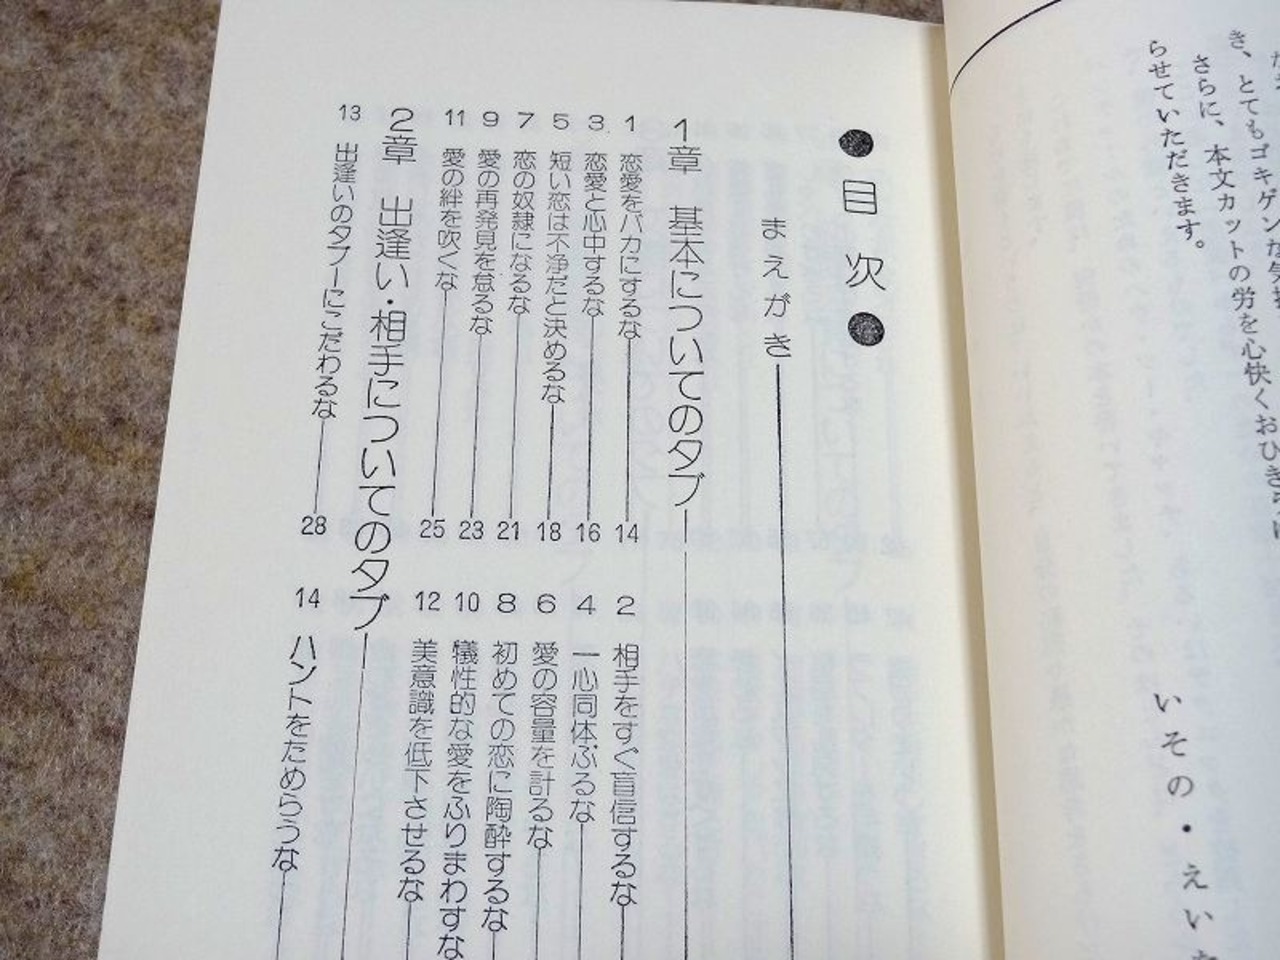 き、とてもゴキゲンな気
さらに、本文カットの労を心快くおひき
らせていただきます。
いその・えい
●目次●
まえがき
1章 基本についてのタブ
1 恋愛をバカにするな 14
2 相手をすぐ盲信するな
3 恋愛と心中するな 16
4 一心同体ぶるな
5 短い恋は不浄だと決めるな 18
6 愛の容量を計るな
7 恋の奴隷になるな 21
8 初めての恋に陶酔するな
9 愛の再発見を怠るな 23
10 犠性的な愛をふりまわすな
11 愛の絆を吹くな 25
12 美意識を低下させるな
2章 出逢い・相手についてのタブ
13 出逢いのタブーにこだわるな 28
14 ハントをためらうな